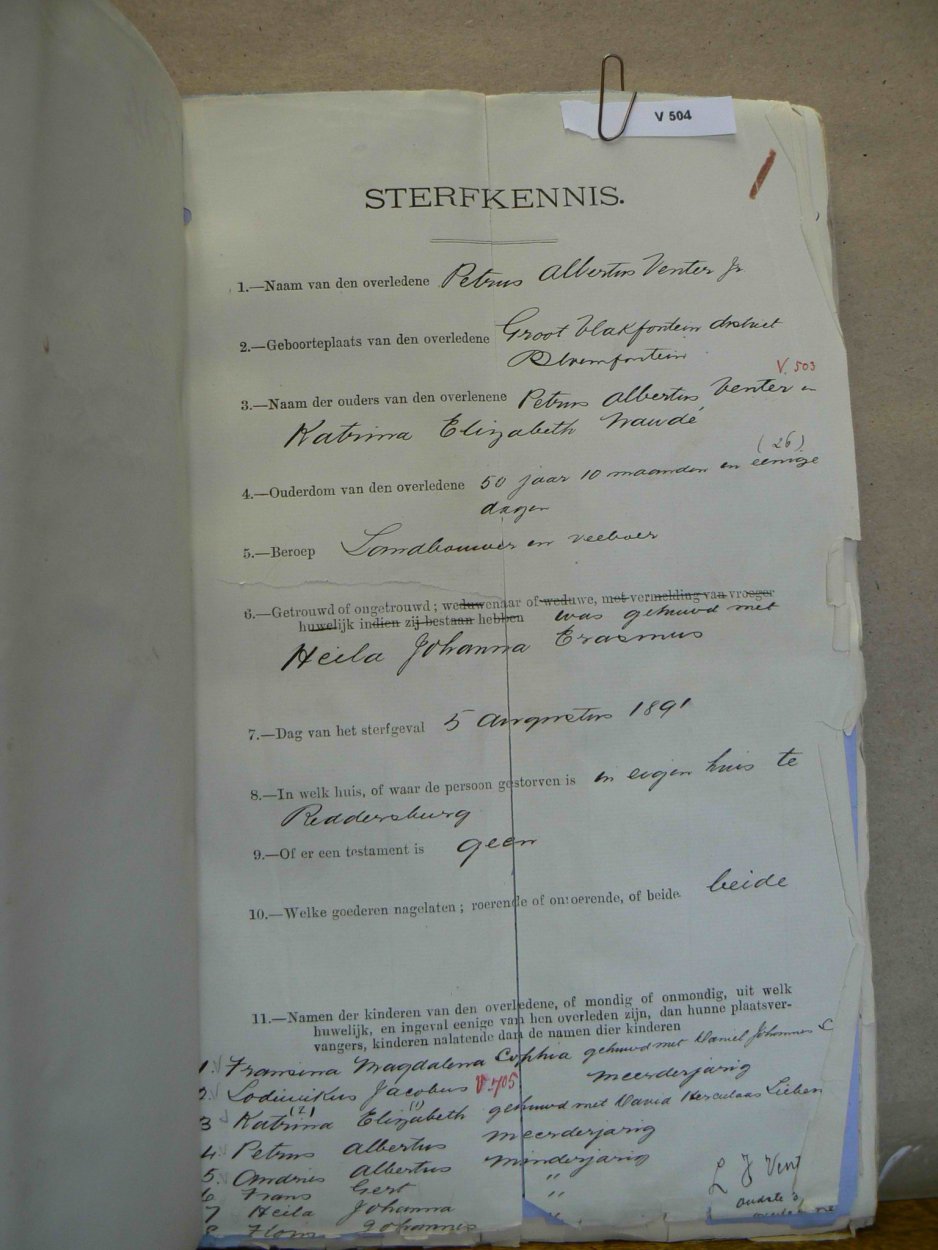 V 504
STERFKENNIS.
1.—Naam van den overledene Petrus Albertus Venter Jr.
2.—Geboorteplaats van den overledene Groot Vlakfontein district
Bloemfontein
V. 503
3.—Naam der ouders van den overlenene Petrus Albertus Venter en
Katrina Elizabeth Naudé
(26)
4.—Ouderdom van den overledene 50 jaar 10 maanden en eenige
dagen
5.—Beroep Landbouwer en veeboer
6.—Getrouwd of ongetrouwd; weduwenaar of weduwe, met vermelding van vroeger
huwelijk indien zij bestaan hebben was gehuwd met
Heila Johanna Erasmus
7.—Dag van het sterfgeval 5 Augustus 1891
8.—In welk huis, of waar de persoon gestorven is in eigen huis te
Reddersburg
9.—Of er een testament is geen
10.—Welke goederen nagelaten; roerende of onroerende, of beide beide
11.—Namen der kinderen van den overledene, of mondig of onmondig, uit welk
huwelijk, en ingeval eenige van hen overleden zijn, dan hunne plaatsver-
vangers, kinderen nalatende dan de namen dier kinderen
1. Fransina Magdalena Cophia gehuwd met Daniel Johannes
2. Lodewikus Jacobus V.705 meerderjarig
3 Katrina (2) Elizabeth (1) gehuwd met David Herculaas Lieben
4. Petrus Albertus meerderjarig
5. Andries Albertus minderjarig
6 Frans Gert "
7 Heila Johanna "
8 Floris Johannes
L J Vent
oudste